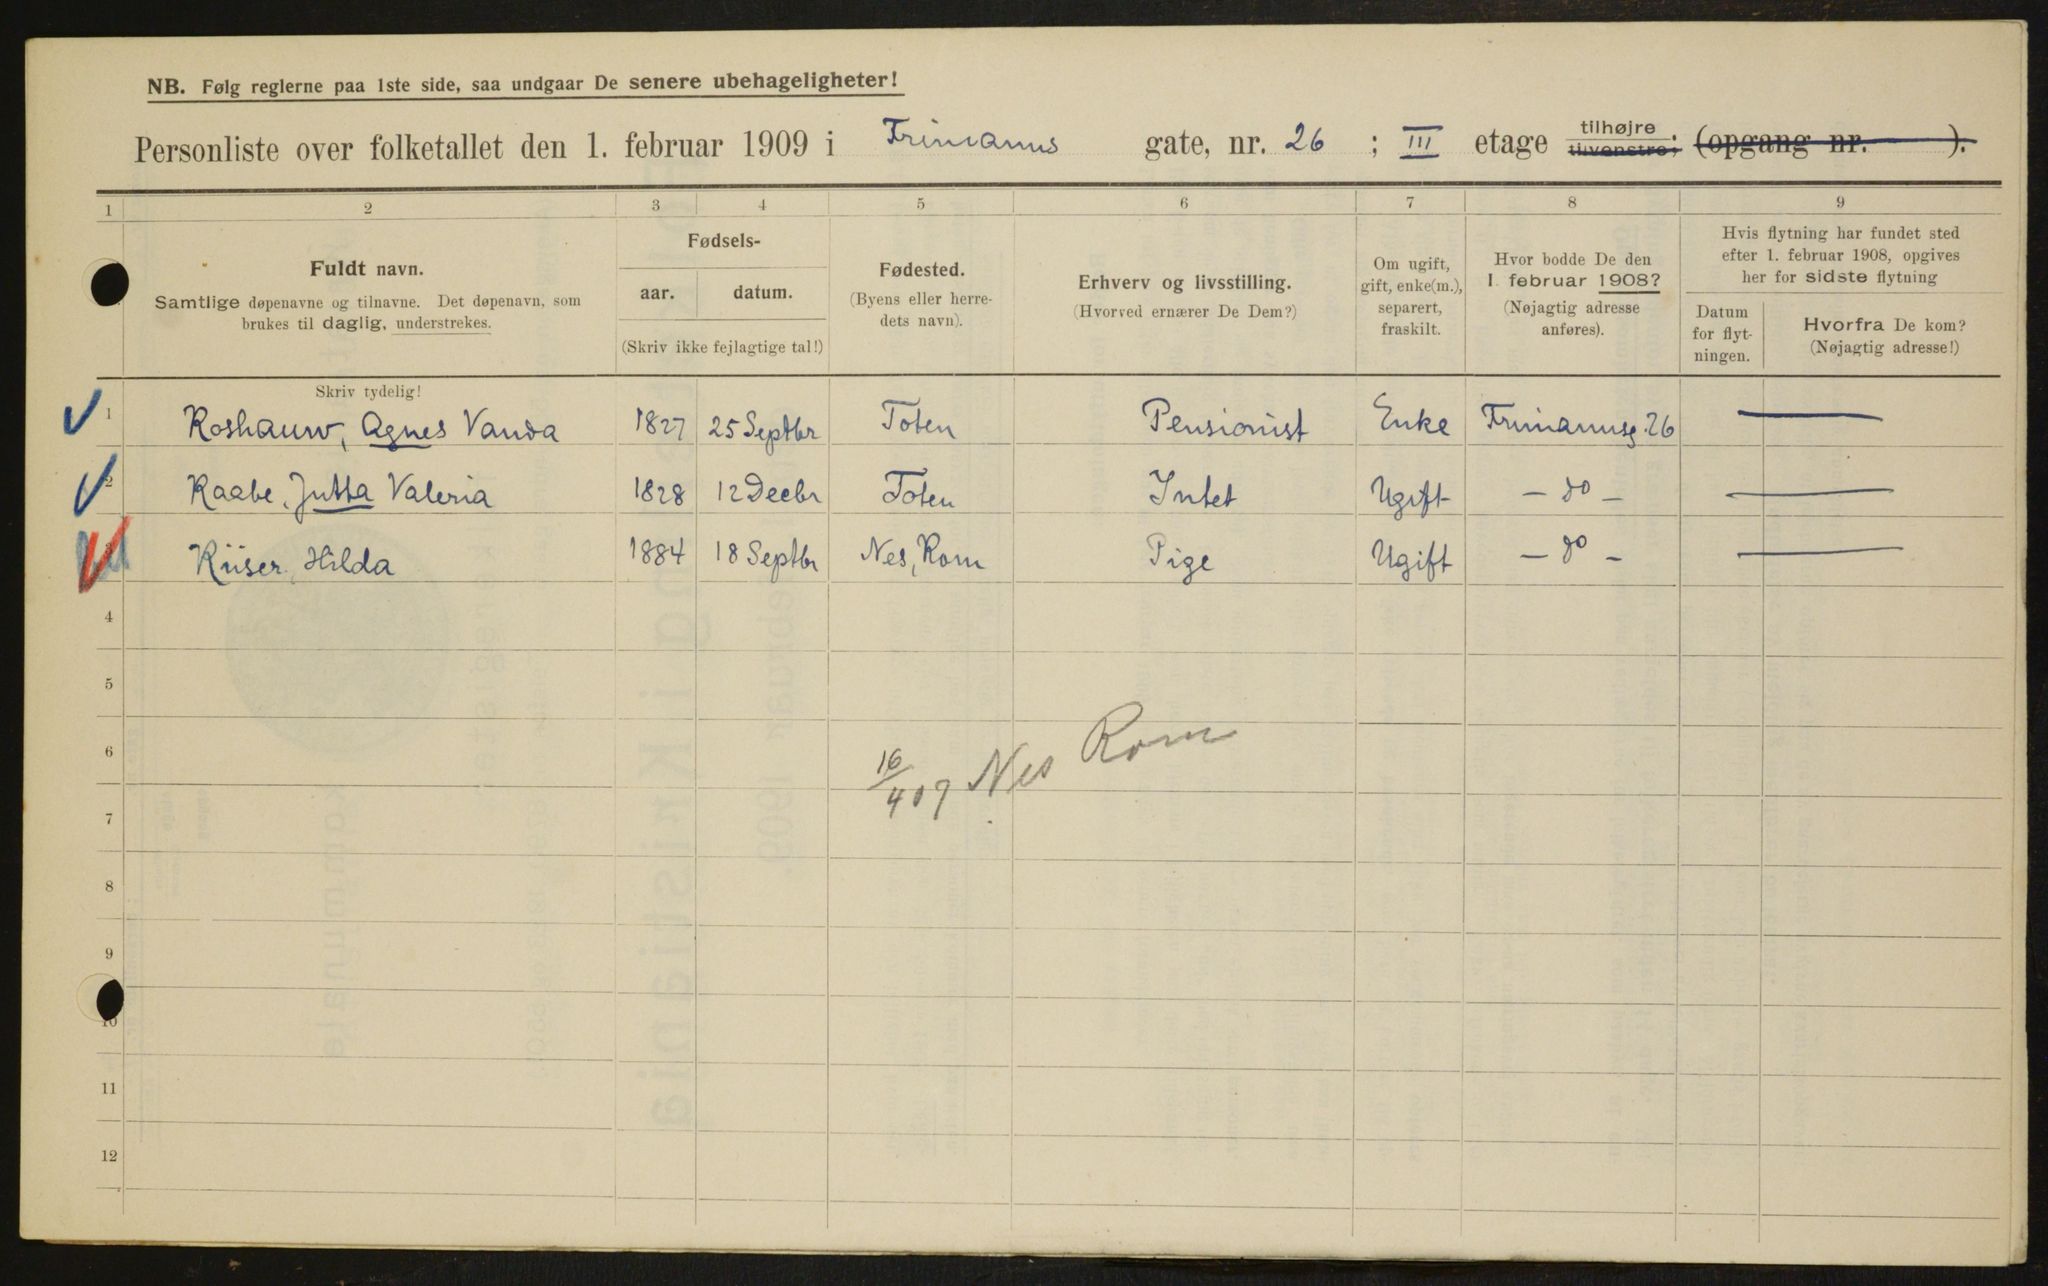 NB. Følg reglerne paa 1ste side, saa undgaar De senere ubehageligheter!
Personliste over folketallet den 1. februar 1909 i Frimanns gate, nr. 26 ; III etage tilhøjre tilvenstre; (opgang nr. ).
1 2 3 4 5 6 7 8 9
Fuldt navn.
Samtlige døpenavne og tilnavne. Det døpenavn, som
brukes til daglig, understrekes.
Fødsels-
aar. datum.
(Skriv ikke fejlagtige tal!)
Fødested.
(Byens eller herre-
dets navn).
Erhverv og livsstilling.
(Hvorved ernærer De Dem?)
Om ugift,
gift, enke(m.),
separert,
fraskilt.
Hvor bodde De den
1. februar 1908?
(Nøjagtig adresse
anføres).
Hvis flytning har fundet sted
efter 1. februar 1908, opgives
her for sidste flytning
Datum
for flyt-
ningen.
Hvorfra De kom?
(Nøjagtig adresse!)
Skriv tydelig!
1 Roshauw, Agnes Vanda 1827 25 Septbr Toten Pensionist Enke Frimannsg. 26 —
2 Raabe, Jutta Valeria 1828 12 Decbr Toten Intet Ugift — do — —
3 Kiiser, Hilda 1884 18 Septbr Nes, Rom Pige Ugift — do — —
4
5
6
16/4 07 Nes Rom
7
8
9
10
11
12